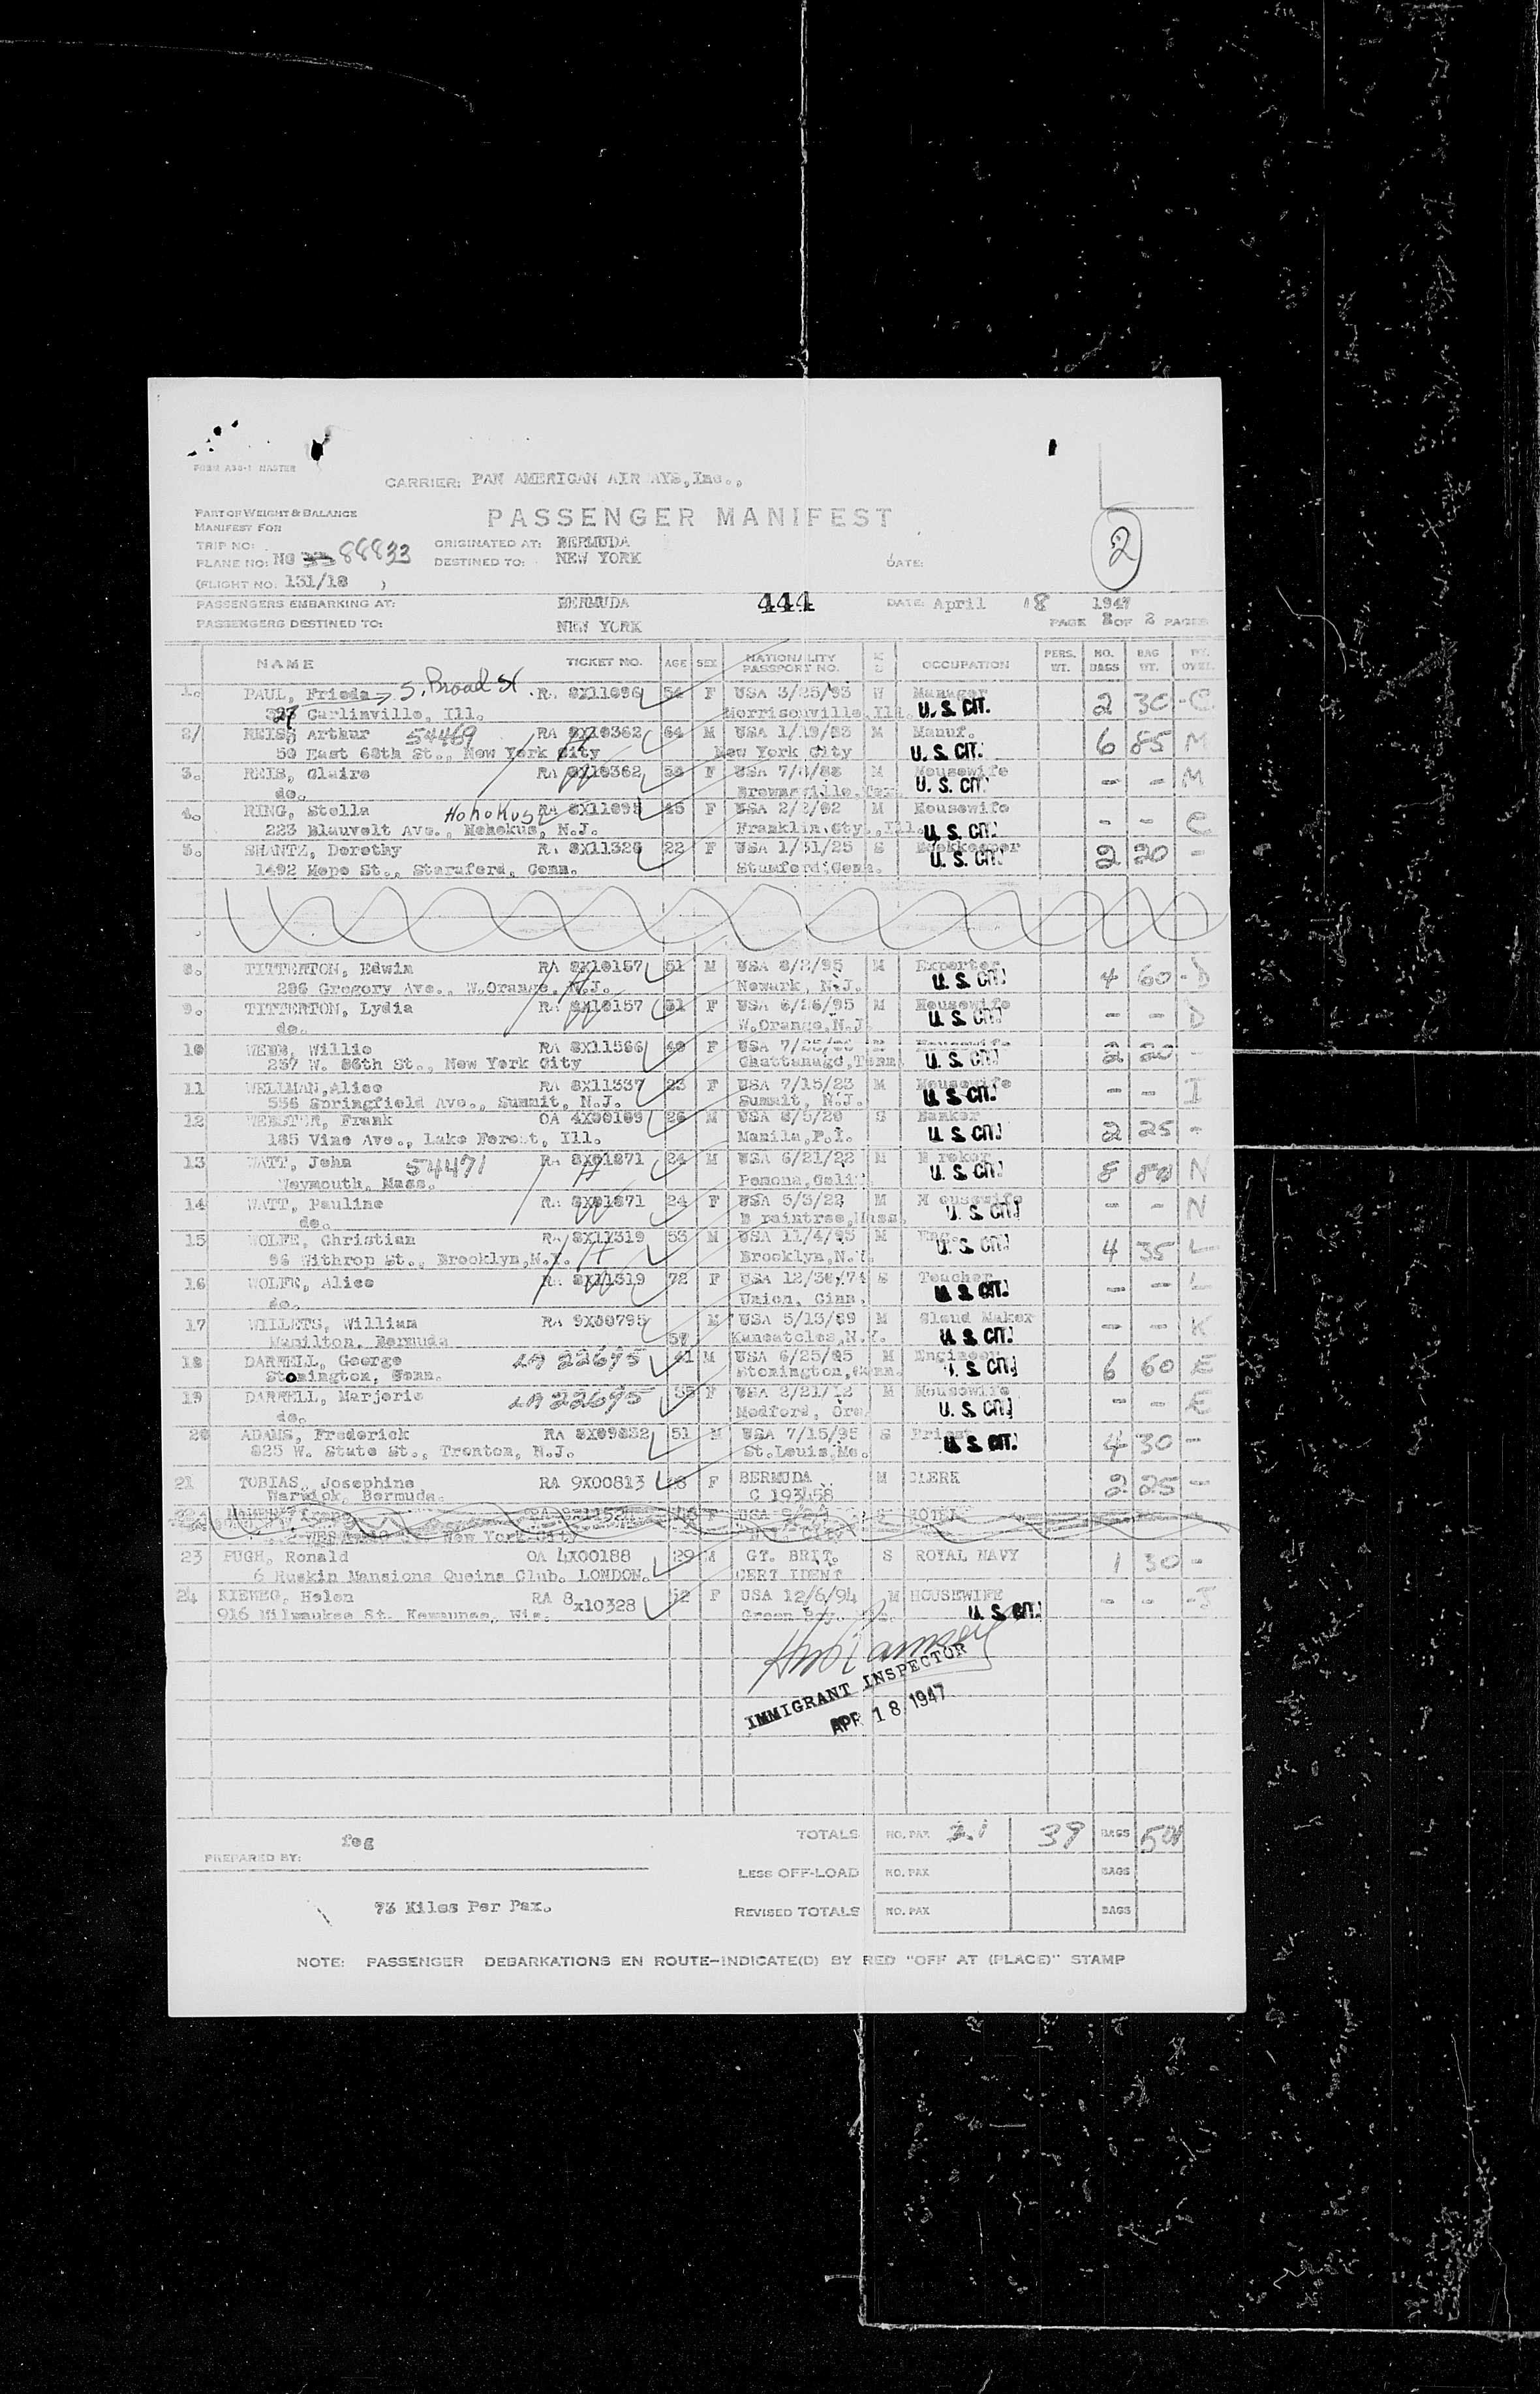 FORM ASS-1 MASTER
CARRIER: PAN AMERICAN AIR AYS, Inc.,
PART OF WEIGHT & BALANCE
MANIFEST FOR
PASSENGER MANIFEST
2
TRIP NO: ORIGINATED AT: BERMUDA
PLANE NO: NC 88833 DESTINED TO: NEW YORK DATE:
(FLIGHT NO. 131/18 )
PASSENGERS EMBARKING AT: BERMUDA 444 DATE: April 18 1947
PASSENGERS DESTINED TO: NEW YORK PAGE 2 OF 2 PAGES
NAME TICKET NO. AGE SEX NATIONALITY PASSPORT NO. OCCUPATION PERS. WT. NO. BAGS BAG WT.
1. PAUL, Frieda S. Broad St RA 8X11096 54 F USA 3/25/93 W Manager 2 30 -C
327 Carlinville, Ill. Morrisonville, Ill. U. S. CIT.
2/ REIS, Arthur 54469 RA 8X10362 64 M USA 1/19/83 M Manuf. 6 85 M
50 East 68th St., New York City New York City U. S. CIT.
3. REIS, Claire RA 8X10362 58 F USA 7/4/88 M Housewife - - M
do. Brownsville, Tex. U. S. CIT.
4. RING, Stella Hohokus RA 8X11095 45 F USA 2/2/02 M Housewife - - C
223 Blauvelt Ave., Hohokus, N.J. Franklin Cty., Ill. U. S. CIT.
5. SHANTZ, Dorothy RA 8X11326 22 F USA 1/31/25 S Bookkeeper 2 20 -
1492 Hope St., Stamford, Conn. Stamford, Conn. U. S. CIT.
8. TITTERTON, Edwin RA 8X10157 51 M USA 8/2/95 M Exporter 4 60 -D
286 Gregory Ave., W.Orange, N.J. Newark, N.J. U. S. CIT.
9. TITTERTON, Lydia RA 8X10157 51 F USA 6/26/95 M Housewife - - D
do. W.Orange, N.J. U. S. CIT.
10 WEBB, Willie RA 8X11566 40 F USA Housewife 2 20 -
237 W. 86th St., New York City Chattanuga, Tenn. U. S. CIT.
11 WELLMAN, Alice RA 8X11337 23 F USA 7/15/23 M Housewife - - I
556 Springfield Ave., Summit, N.J. Summit, N.J. U. S. CIT.
12 WEBSTER, Frank OA 4X00189 26 M USA 8/5/20 S Banker 2 25 -
185 Vine Ave., Lake Forest, Ill. Manila, P.I. U. S. CIT.
13 WATT, John 54471 RA 8X01871 24 M USA 6/21/22 M B roker 8 80 N
Weymouth, Mass. Pomona, Calif. U. S. CIT.
14 WATT, Pauline RA 8X01871 24 F USA 5/3/22 M H ousewife - - N
do. B raintree, Mass. U. S. CIT.
15 WOLFE, Christian RA 8X11319 53 M USA 11/4/95 M Eng. 4 35 L
96 Withrop St., Brooklyn, N.Y. Brooklyn, N.Y. U. S. CIT.
16 WOLFE, Alice RA 8X11319 72 F USA 12/30/74 S Teacher - - L
do. Union, Cinn. U. S. CIT.
17 WILLETS, William RA 9X00795 M USA 5/13/89 M Cloud Maker - - K
Hamilton, Bermuda 57 U. S. CIT.
18 DARRELL, George LA 22675 41 M USA 6/25/95 M Engineer 6 60 E
Stonington, Conn. Stonington, Conn. U. S. CIT.
19 DARRELL, Marjorie LA 22695 35 F USA 2/21/12 M Housewife - - E
do. Medford, Ore. U. S. CIT.
20 ADAMS, Frederick RA 8X09832 51 M USA 7/15/95 S Priest 4 30 -
825 W. State St., Trenton, N.J. St. Louis, Mo. U. S. CIT.
21 TOBIAS, Josephine RA 9X00813 F BERMUDA M CLERK 2 25 -
Warwick, Bermuda. C 193458
New York City
23 PUGH, Ronald OA 4X00188 29 M GT. BRIT. S ROYAL NAVY 1 30 -
6 Ruskin Mansions Queins Club. LONDON. CERT IDENT
24 KIEWEG, Helen RA 8x10328 52 F USA 12/6/94 M HOUSEWIFE - - -J
916 Milwaukee St. Kewaunee, Wis. Green Bay, U. S. CIT.
IMMIGRANT INSPECTOR
APR 18 1947
TOTALS NO. PAX 21 39 BAGS 501
feg
PREPARED BY:
LESS OFF-LOAD NO. PAX BAGS
73 Kilos Per Pax. REVISED TOTALS NO. PAX BAGS
NOTE: PASSENGER DEBARKATIONS EN ROUTE-INDICATE(D) BY RED "OFF AT (PLACE)" STAMP